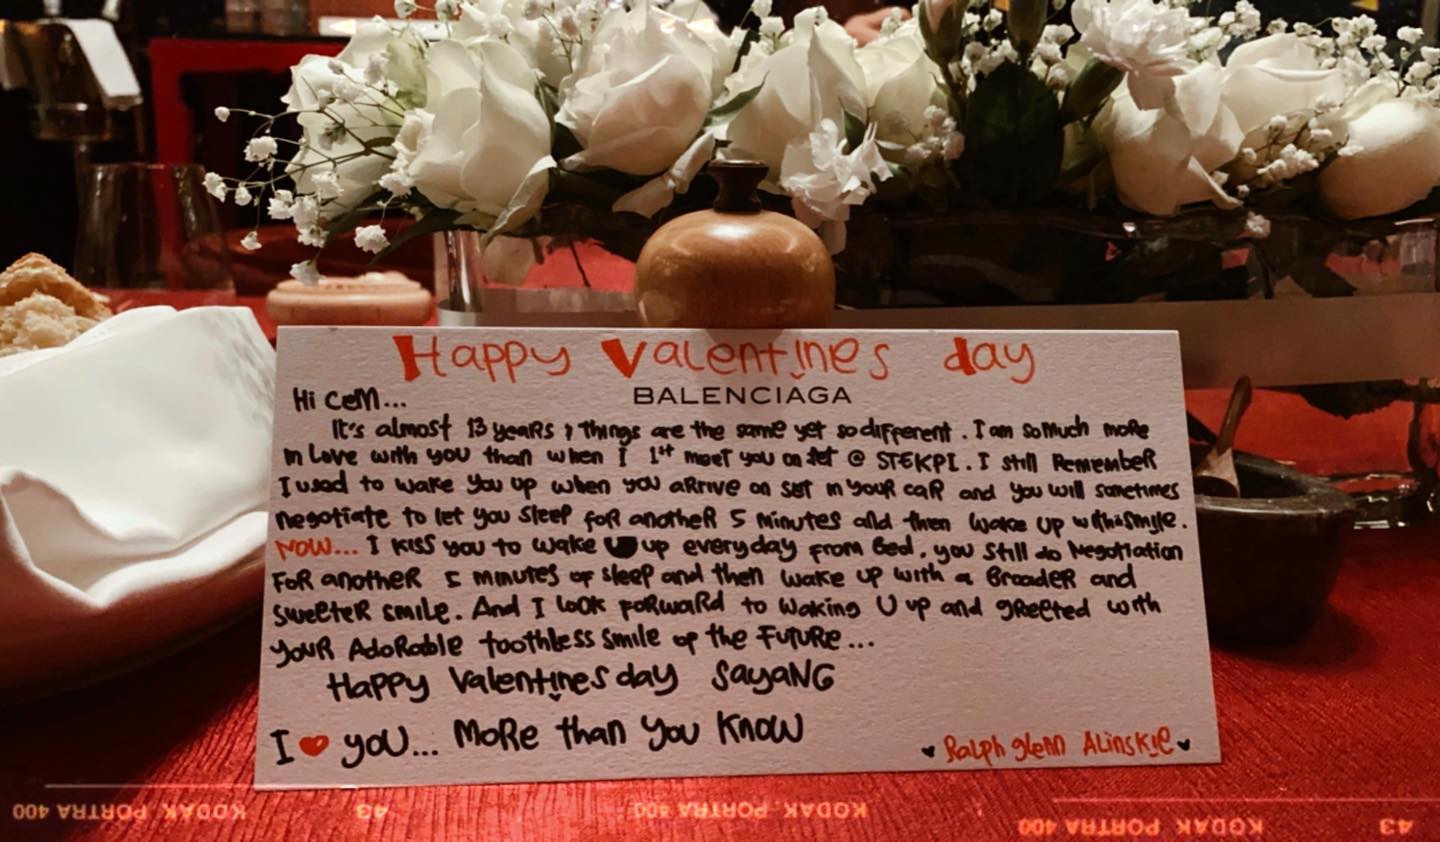 Happy Valentines day
BALENCIAGA
Hi Cem...
It's almost 13 years, things are the same yet so different. I am so much more
in love with you than when I 1st meet you on set @ STEKPI. I still Remember
I used to wake you up when you arrive on set in your car and you will sometimes
negotiate to let you sleep for another 5 minutes and then wake up with a smile.
NOW... I kiss you to wake U up everyday from bed, you still do Negotiation
For another 5 minutes of sleep and then wake up with a Broader and
sweeter smile. And I look forward to waking U up and greeted with
your Adorable toothless smile of the Future...
Happy Valentines day SayaNG
I ❤ you... More than you know
♥ Ralph glenn ALinskie ♥
KODAK PORTRA 400
43
KODAK PORTRA 400
KODAK PORTRA 400
43